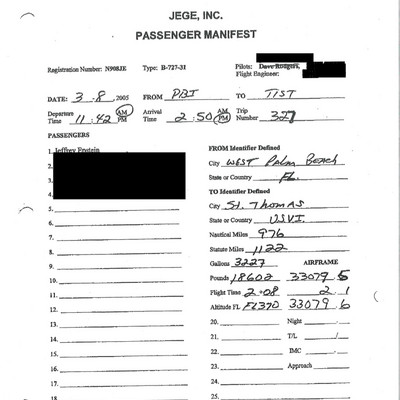 JEGE, INC.
PASSENGER MANIFEST
Registration Number: N908JE Type: B-727-31 Pilots: Dave Rodgers,
Flight Engineer:
DATE: 3.8, 2005 FROM PBI TO TIST
Departure Time 11:42 AM PM Arrival Time 2:50 AM PM Trip Number 327
PASSENGERS FROM Identifier Defined
1. Jeffrey Epstein
City West Palm Beach
3.
State or Country FL.
4.
TO Identifier Defined
5.
City St. Thomas
6.
State or Country USVI
7.
Nautical Miles 976
8.
Statute Miles 1122
9.
Gallons 3227 AIRFRAME
10.
Pounds 18602 33079.5
11.
Flight Time 2+08 2.1
12.
Altitude FL FL370 33079.6
13.
20. Night
14.
21. T/L /
15.
22. IMC
16.
23. Approach
17.
24.
18.
25.